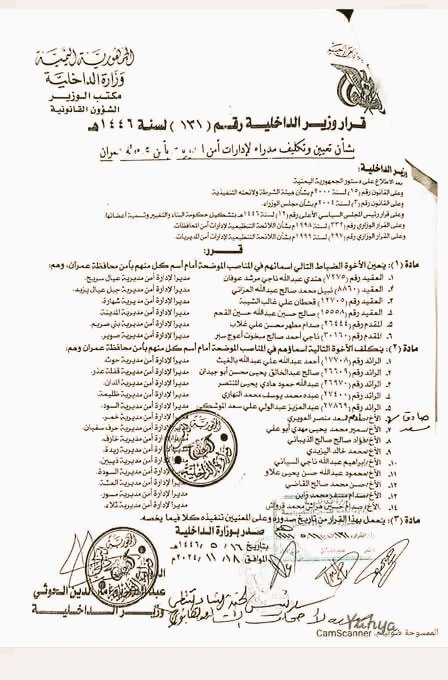 الجمهورية اليمنية
وزارة الداخلية
مكتب الوزير
الشؤون القانونية
قرار وزير الداخلية رقم (١٣١) لسنة ١٤٤٦هـ
بشأن تعيين وتكليف مدراء لإدارات أمن عمران
وزير الداخلية:
بعد الاطلاع على دستور الجمهورية اليمنية
وعلى القانون رقم (١٥) لسنة ٢٠٠٠م بشأن هيئة الشرطة ولائحته التنفيذية
وعلى القانون رقم (٣) لسنة ٢٠٠٤م بشأن مجلس الوزراء.
وعلى قرار رئيس المجلس السياسي الأعلى رقم (١٦) لسنة ١٤٤٦هـ بتشكيل حكومة البناء والتغيير وتسمية أعضائها.
وعلى القرار الوزاري رقم (٣٣٢) لسنة ١٩٩٨م بشأن اللائحة التنظيمية لإدارات أمن المحافظات
وعلى القرار الوزاري رقم (٢٩٧) لسنة ١٩٩٩م بشأن اللائحة التنظيمية لإدارات أمن المديريات.
قرر
مادة (١): يعين الأخوة الضباط التالي اسمائهم في المناصب الموضحة أمام أسم كل منهم بأمن محافظة عمران، وهم:
١. العقيد رقم (٧٢٧٥) هندي عبدالله ناجي مرشد عوفان مديرا لإدارة أمن مديرية خمر.
٢. العقيد رقم (٨٨٦٠) نبيل محمد صالح عبدالله العزاني مديرا لإدارة أمن مديرية جبل عيال يزيد.
٣. العقيد رقم (١٢٧٠٥) قحطان علي غالب الشيبة مديرا لإدارة أمن مديرية شهارة.
٤. العقيد رقم (١٥٥٥٨) صالح حسين عبدالله حسين الفحم مديرا لإدارة أمن مديرية المدينة.
٥. المقدم رقم (٢٦٤٤٤) صدام مطهر محسن علي غلاب مديرا لإدارة أمن مديرية بني صريم.
٦. المقدم رقم (٣١٦٦٠) ناجي أحمد صالح مبخوت أعوج سبر مديرا لإدارة أمن مديرية صوير.
مادة (٢): يكلف الأخوة التالية أسماؤهم في المناصب الموضحة أمام أسم كل منهم بأمن محافظة عمران وهم:
١. الرائد رقم (١٧٠٧٧) أحمد عبدالله علي عبدالله بالغيث مديرا لإدارة أمن مديرية حوث.
٢. الرائد رقم (٢٦٠٩٠) صالح عبدالخالق يحيى محسن أبو جيدان مديرا لإدارة أمن مديرية قفلة عذر.
٣. الرائد رقم (٢٦٩٧٠) عبدالله حمود هادي يحيى المنتصر مديرا لإدارة أمن مديرية المدان.
٤. الرائد رقم (٢٧٤٠٠) عبده محمد يوسف محمد النهاري مديرا لإدارة أمن مديرية ظليمة.
٥. الرائد رقم (٢٧٨٢٦) عبدالعزيز عبدالولي علي سعد مديرا لإدارة أمن مديرية
٦. منصر العويري مديرا لإدارة أمن مديرية خمر.
٧. الأخ/سمير محمد يحيى مهدي أبو علي مديرا لإدارة أمن مديرية حرف سفيان.
٨. الأخ/فؤاد صالح صالح الذيباني مديرا لإدارة أمن مديرية خارف.
٩. الأخ/محمد خالد اليزيدي مديرا لإدارة أمن مديرية ريدة.
١٠. الأخ/إبراهيم عبدالله ناجي السياني مديرا لإدارة أمن مديرية ذيبين.
١١. الأخ/محمود عبدالله حسن يحيى علاو مديرا لإدارة أمن مديرية حبور.
١٢. الأخ/حسن محمد صالح القاضي مديرا لإدارة أمن مديرية العشة.
١٣. الأخ/صدام مسفر محمد زاين مديرا لإدارة أمن مديرية مسور.
١٤. الأخ/صدام حسين محمد مديرا لإدارة أمن مديرية ثلاء.
صادق
مادة (٣): يعمل بهذا القرار من تاريخ صدوره وعلى المعنيين تنفيذه كلا فيما يخصه.
صدر بوزارة الداخلية
بتاريخ ١٦ / ٥ / ١٤٤٦هـ
الموافق ١٨ / ١١ / ٢٠٢٤م
الدين الحوثي
وزير الداخلية
Yahya
الممسوحة ضوئيا بـ CamScanner